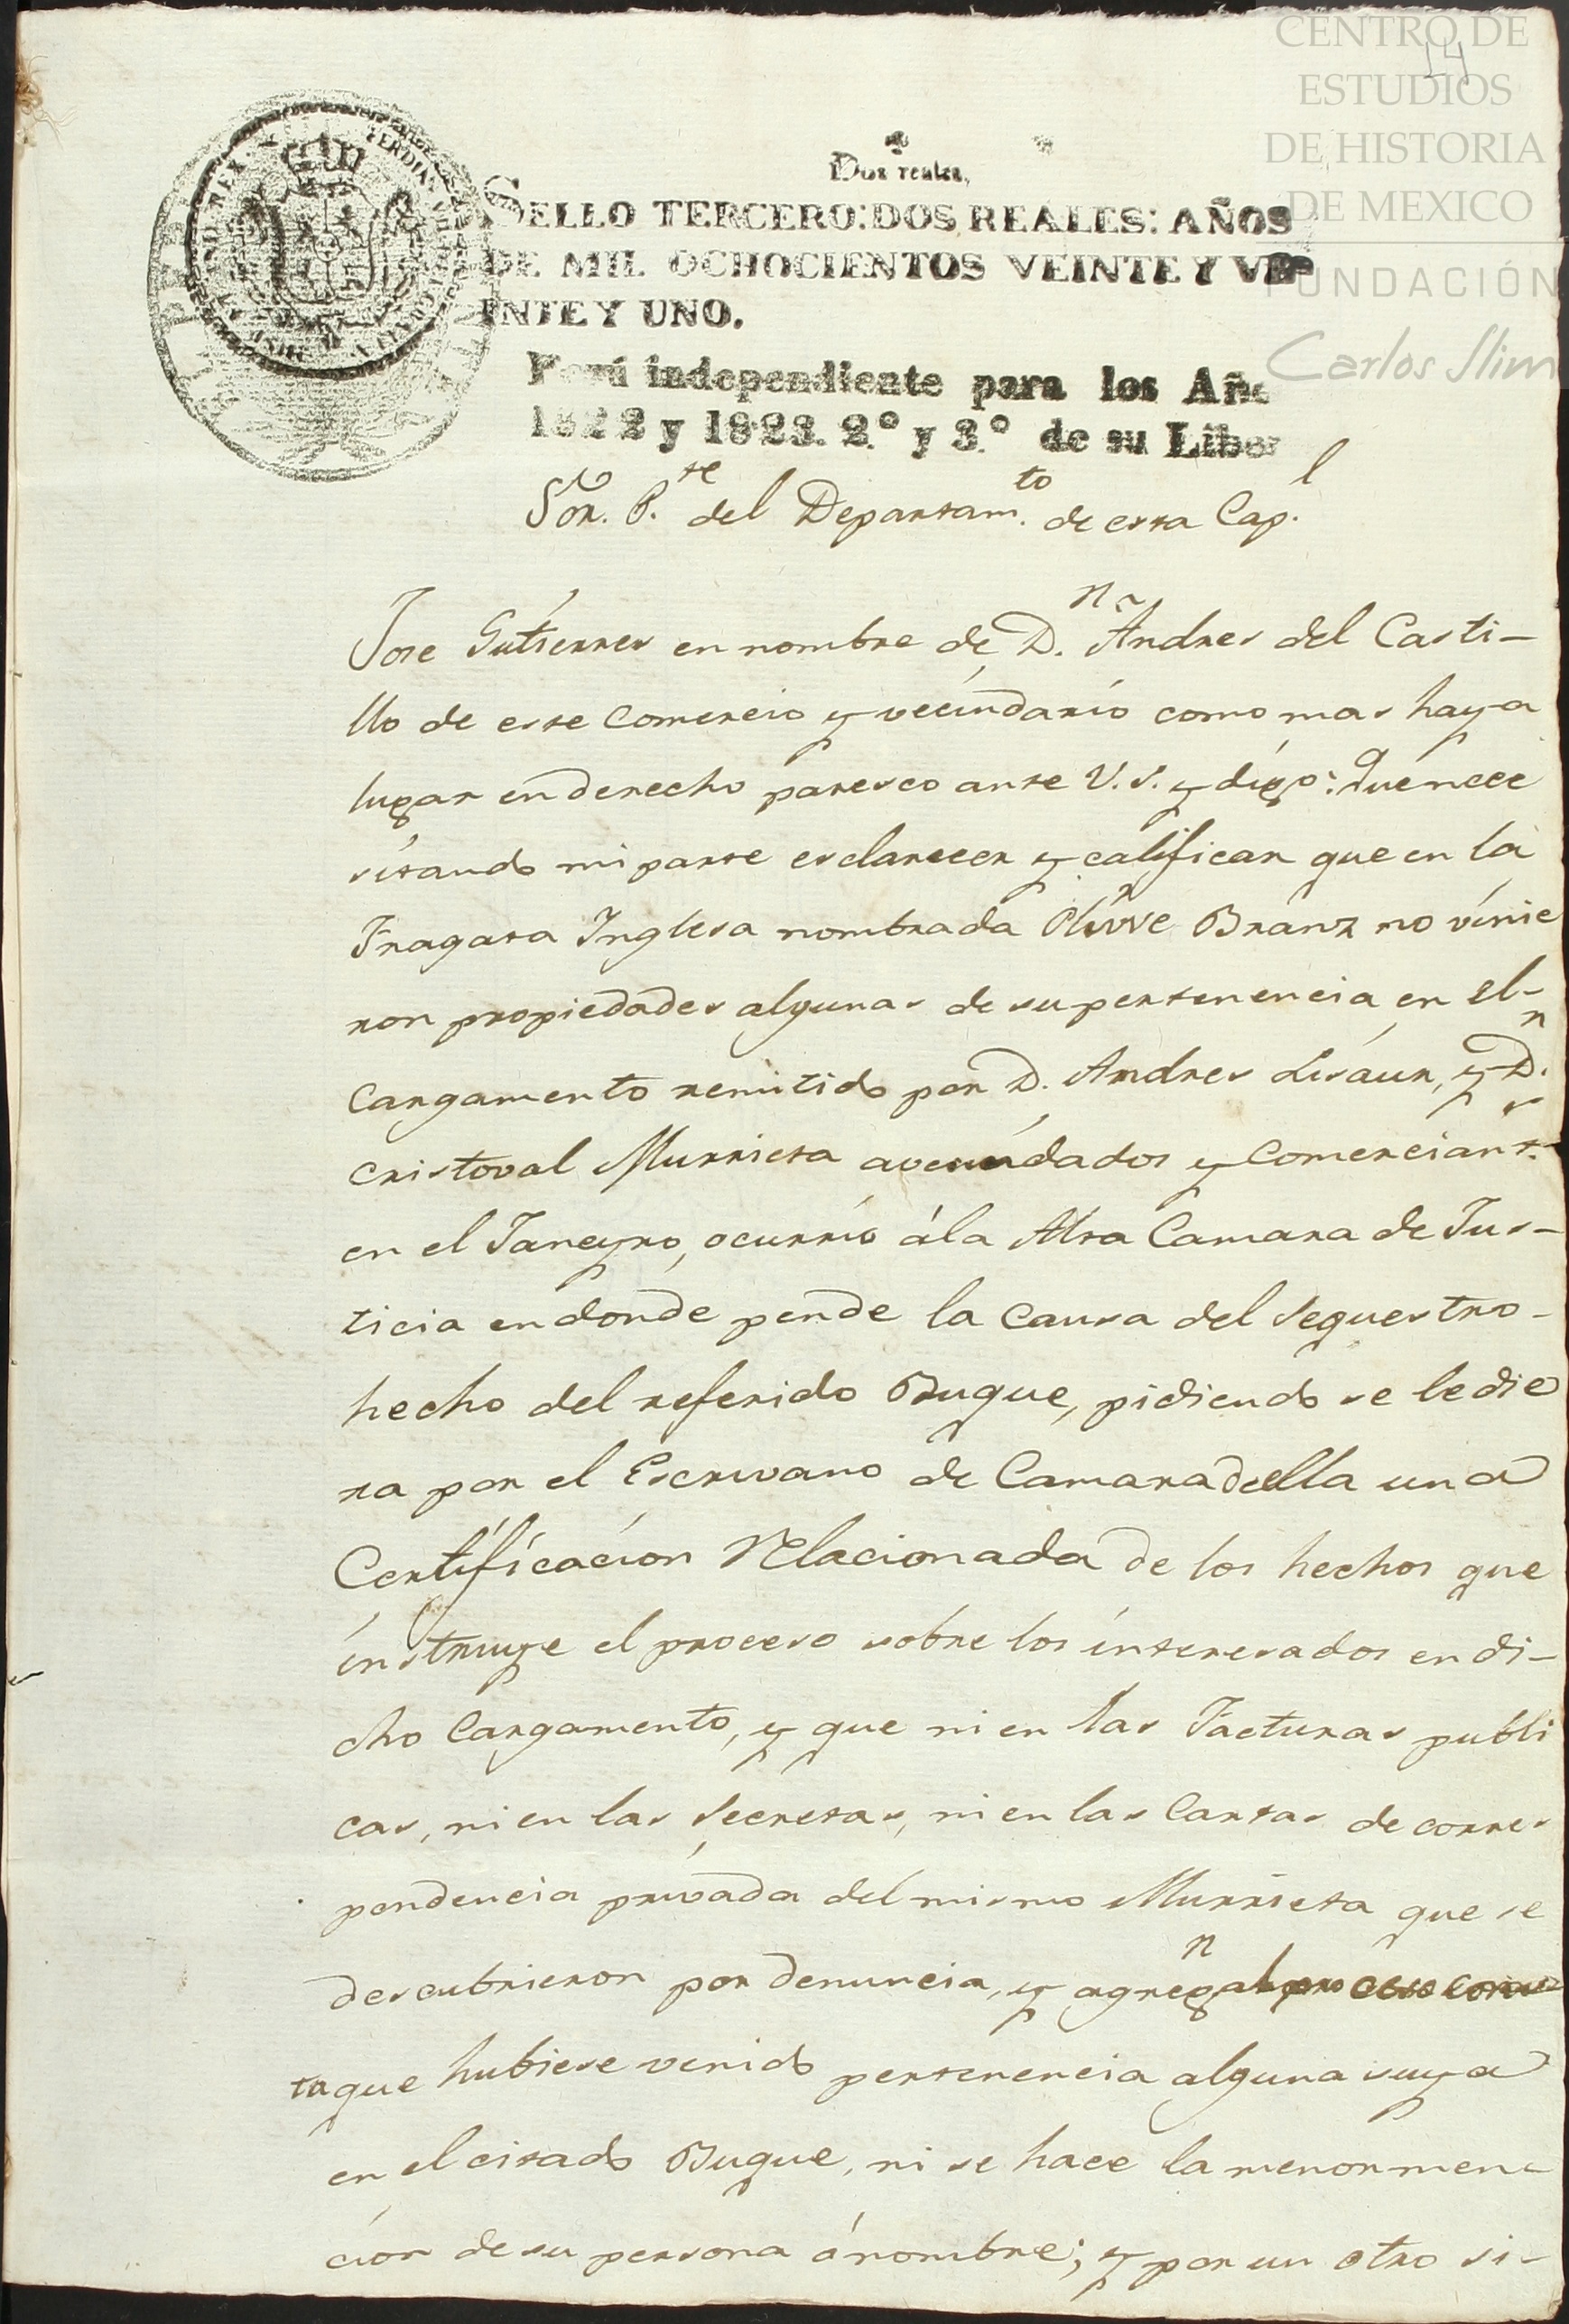 CENTRO DE
ESTUDIOS
DE HISTORIA
DE MEXICO
FUNDACIÓN
Carlos Slim
14
Dos reales,
SELLO TERCERO: DOS REALES: AÑOS
DE MIL OCHOCIENTOS VEINTE Y VE
INTE Y UNO.
Perú independiente para los Año
1822 y 1823. 2.º y 3.º de su Liber
Sor. P.te del Departam.to de esta Cap.l
Jose Gutierres en nombre de D.n Andres del Casti-
llo de este Comercio y vecindario como mas haya
lugar en derecho paresco ante V.S. y digo: Que nece
sitando mi parte esclarecer y calificar que en la
Fragata Inglesa nombrada Olivve Branz no vinie
ron propiedades algunas de su pertenencia en el-
Cargamento remitido por D. Andres Lisaur, y D.n
Cristoval Murrieta avecindados y Comerciant.s
en el Janeyro, ocurrio á la Alta Camara de Jus-
ticia en donde pende la Causa del Sequestro-
hecho del referido Buque, pidiendo se le die
ra por el Escrivano de Camara de ella una
Certificacion Relacionada de los hechos que
instruye el proceso sobre los interesados en di-
cho Cargamento, y que ni en las Facturas publi
cas, ni en las Secretas, ni en las Cartas de corres
pondencia privada del mismo Murrieta que se
descubrieron por denuncia, y agreg.n al proceso cons
ta que hubiese venido pertenencia alguna suya
en el citado Buque, ni se hace la menor men-
cion de su persona ó nombre; y por un otro si-